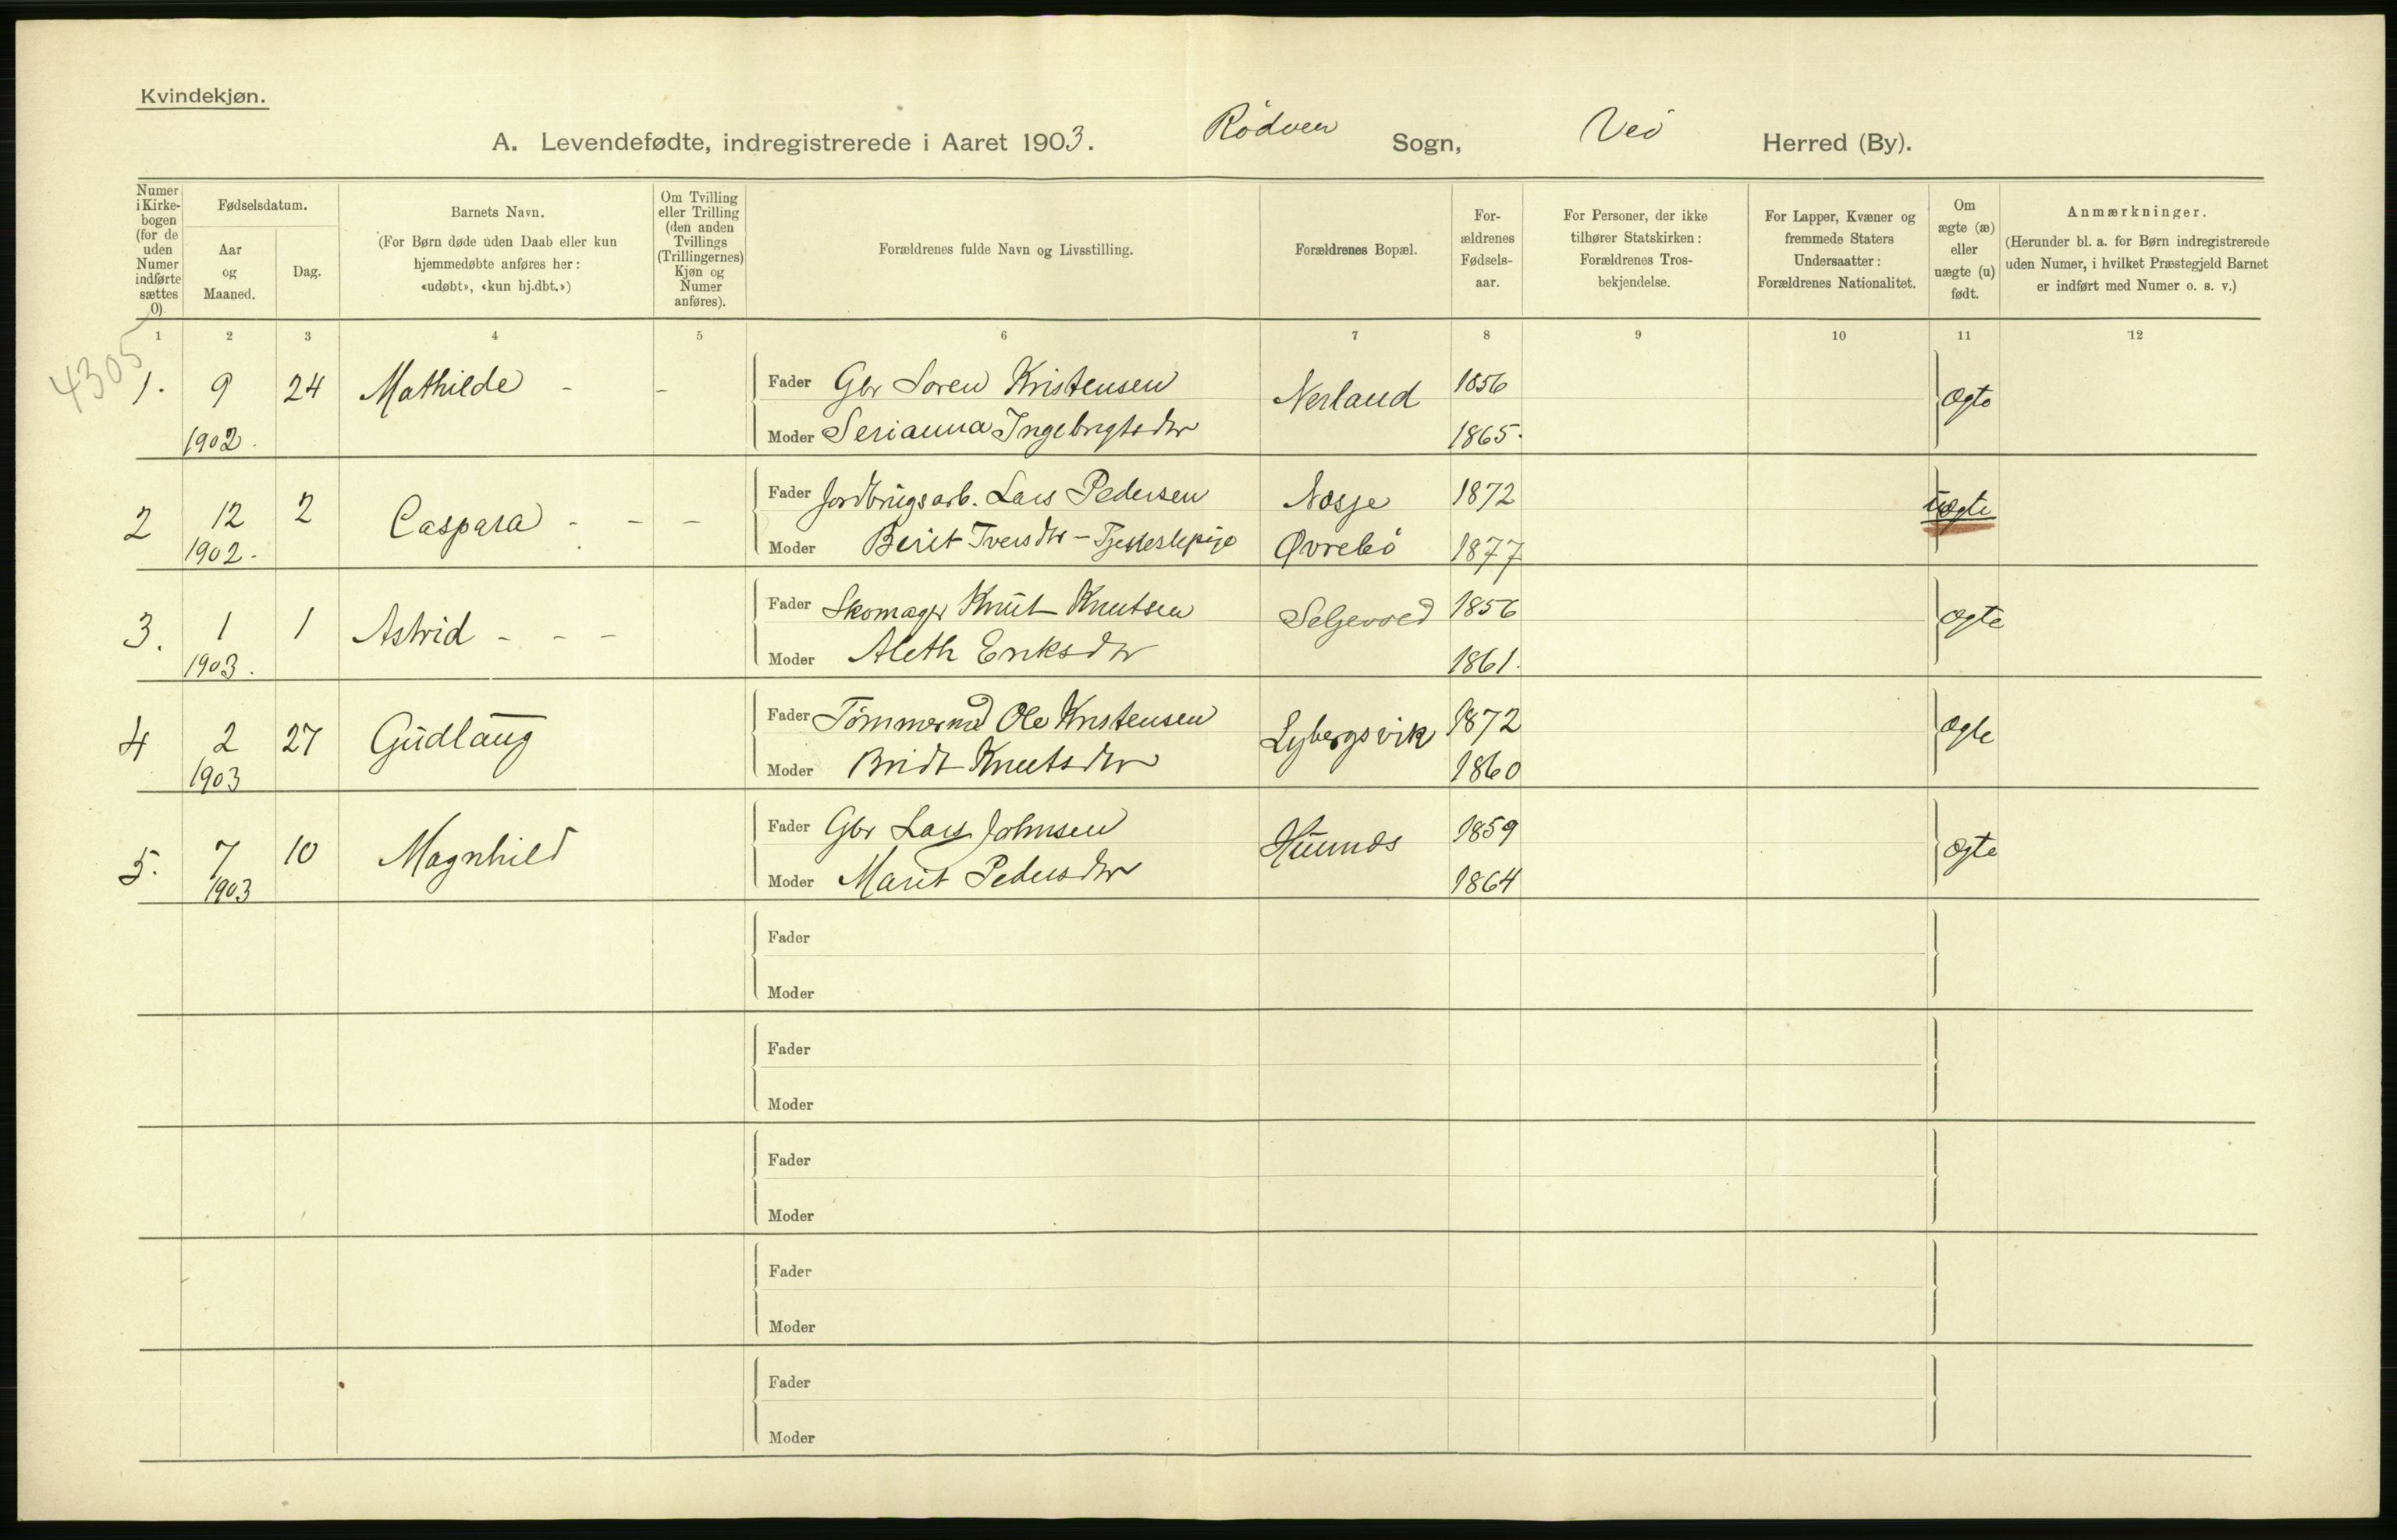 Kvindekjøn.
A. Levendefødte, indregistrerede i Aaret 1903. Rödven Sogn, Veö Herred (By).
Numer i Kirkebogen (for de uden Numer indførte sættes 0).
Fødselsdatum.
Aar og Maaned.
Dag.
Barnets Navn.
(For Børn døde uden Daab eller kun hjemmedøbte anføres her: «udøbt», «kun hj.dbt.»)
Om Tvilling eller Trilling (den anden Tvillings (Trillingernes) Kjøn og Numer anføres).
Forældrenes fulde Navn og Livsstilling.
Forældrenes Bopæl.
Forældrenes Fødselsaar.
For Personer, der ikke tilhører Statskirken: Forældrenes Trosbekjendelse.
For Lapper, Kvæner og fremmede Staters Undersaatter: Forældrenes Nationalitet.
Om ægte (æ) eller uægte (u) født.
Anmærkninger.
(Herunder bl. a. for Børn indregistrerede uden Numer, i hvilket Præstegjeld Barnet er indført med Numer o. s. v.)
1 2 3 4 5 6 7 8 9 10 11 12
4305
1. 9 24 Mathilde - - Fader Gbr Soren Kristensen Nerland 1856 ægte
1902. Moder Serianna Ingebrigtsdtr 1865.
2 12 2 Caspara - - - Fader Jordbrugsarb. Lars Pedersen Nosje 1872 uægte
1902. Moder Berit Iversdtr - Tjenestepige Øvrebö 1877
3. 1 1 Astrid - - - Fader Skomager Knut Knutsen Seljevold 1856 ægte
1903. Moder Aleth Eriksdtr 1861.
4 2 27 Gudlaug Fader Tömmermd Ole Kristensen Lybergsvik 1872 ægte
1903 Moder Bridt Knutsdtr 1860
5. 7 10 Magnhild Fader Gbr Lars Johnsen 1859 ægte
1903 Moder Marit Pedersdtr 1864
Fader
Moder
Fader
Moder
Fader
Moder
Fader
Moder
Fader
Moder